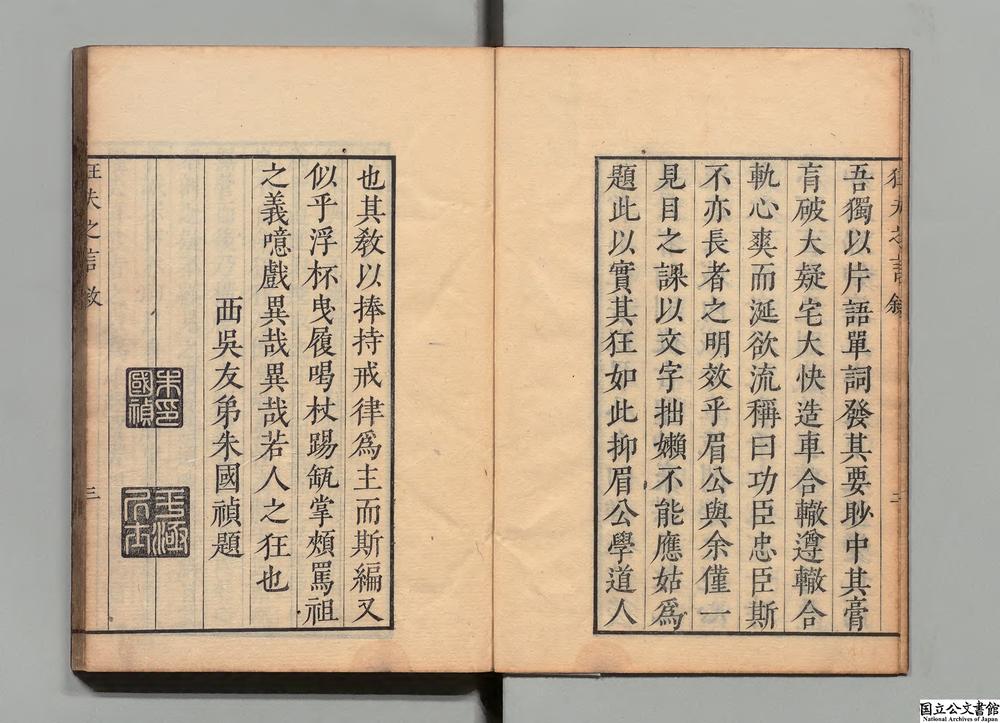 狂夫之言敘
二
吾獨以片語單詞發其要眇中其膏
肓破大疑宅大快造車合轍遵轍合
軌心爽而涎欲流稱曰功臣忠臣斯
不亦長者之明效乎眉公與余僅一
見目之課以文字拙嬾不能應姑爲
題此以實其狂如此抑眉公學道人
也其敎以捧持戒律爲主而斯編又
似乎浮杯曳履喝杖踢缻掌頰罵祖
之義噫戲異哉異哉若人之狂也
西吳友弟朱國禎題
朱印
國禎
狂夫之言敘
三
国立公文書館
National Archives of Japan